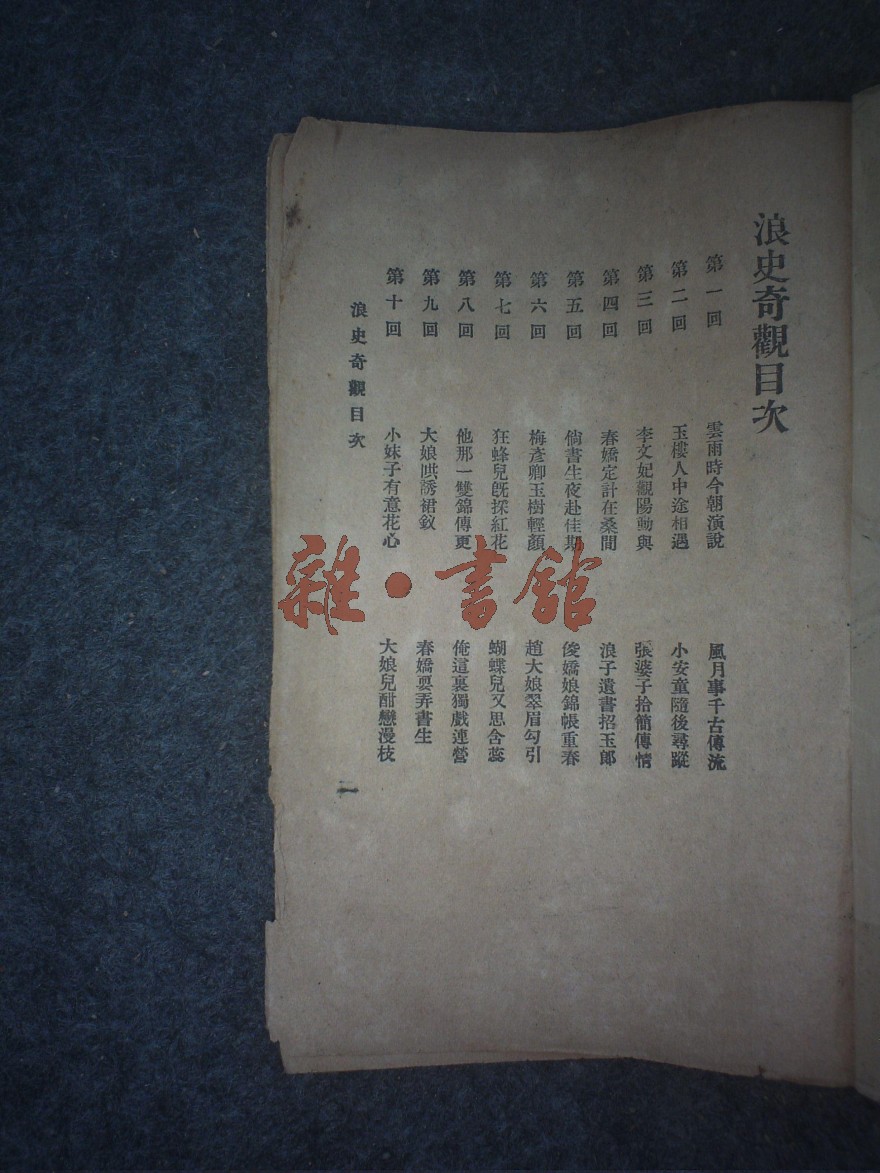 浪史奇觀目次
第一回 雲雨時今朝演說 風月事千古傳流
第二回 玉樓人中途相遇 小安童隨後尋蹤
第三回 李文妃觀陽動興 張婆子拾簡傳情
第四回 春嬌定計在桑間 浪子遺書招玉郎
第五回 俏書生夜赴佳期 俊嬌娘錦帳重春
第六回 梅彥卿玉樹輕顏 趙大娘翠眉勾引
第七回 狂蜂兒旣採紅花 蝴蝶兒又思含蕊
第八回 他那一雙錦傳更 俺這裏獨戲連營
第九回 大娘哄誘裙釵 春嬌耍弄書生
第十回 小妹子有意花心 大娘兒酣戀漫枝
浪史奇觀目次
一
雜·書館